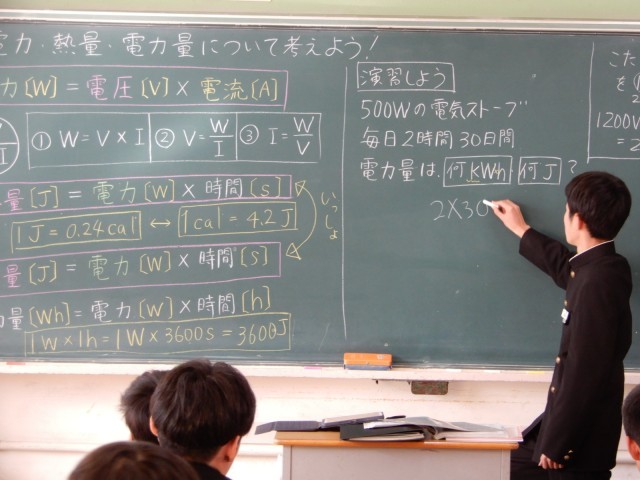 電力・熱量・電力量について考えよう!
力[W] = 電圧[V] × 電流[A]
W
I
① W = V × I ② V = W/I ③ I = W/V
量[J] = 電力[W] × 時間[s]
1J = 0.24cal ↔ 1cal = 4.2J
いっしょ
量[J] = 電力[W] × 時間[s]
量[Wh] = 電力[W] × 時間[h]
1W × 1h = 1W × 3600s = 3600J
演習しよう
500Wの電気ストーブ
毎日2時間 30日間
電力量は、何KWh・何J?
2×30
こた
を
1200W
=2